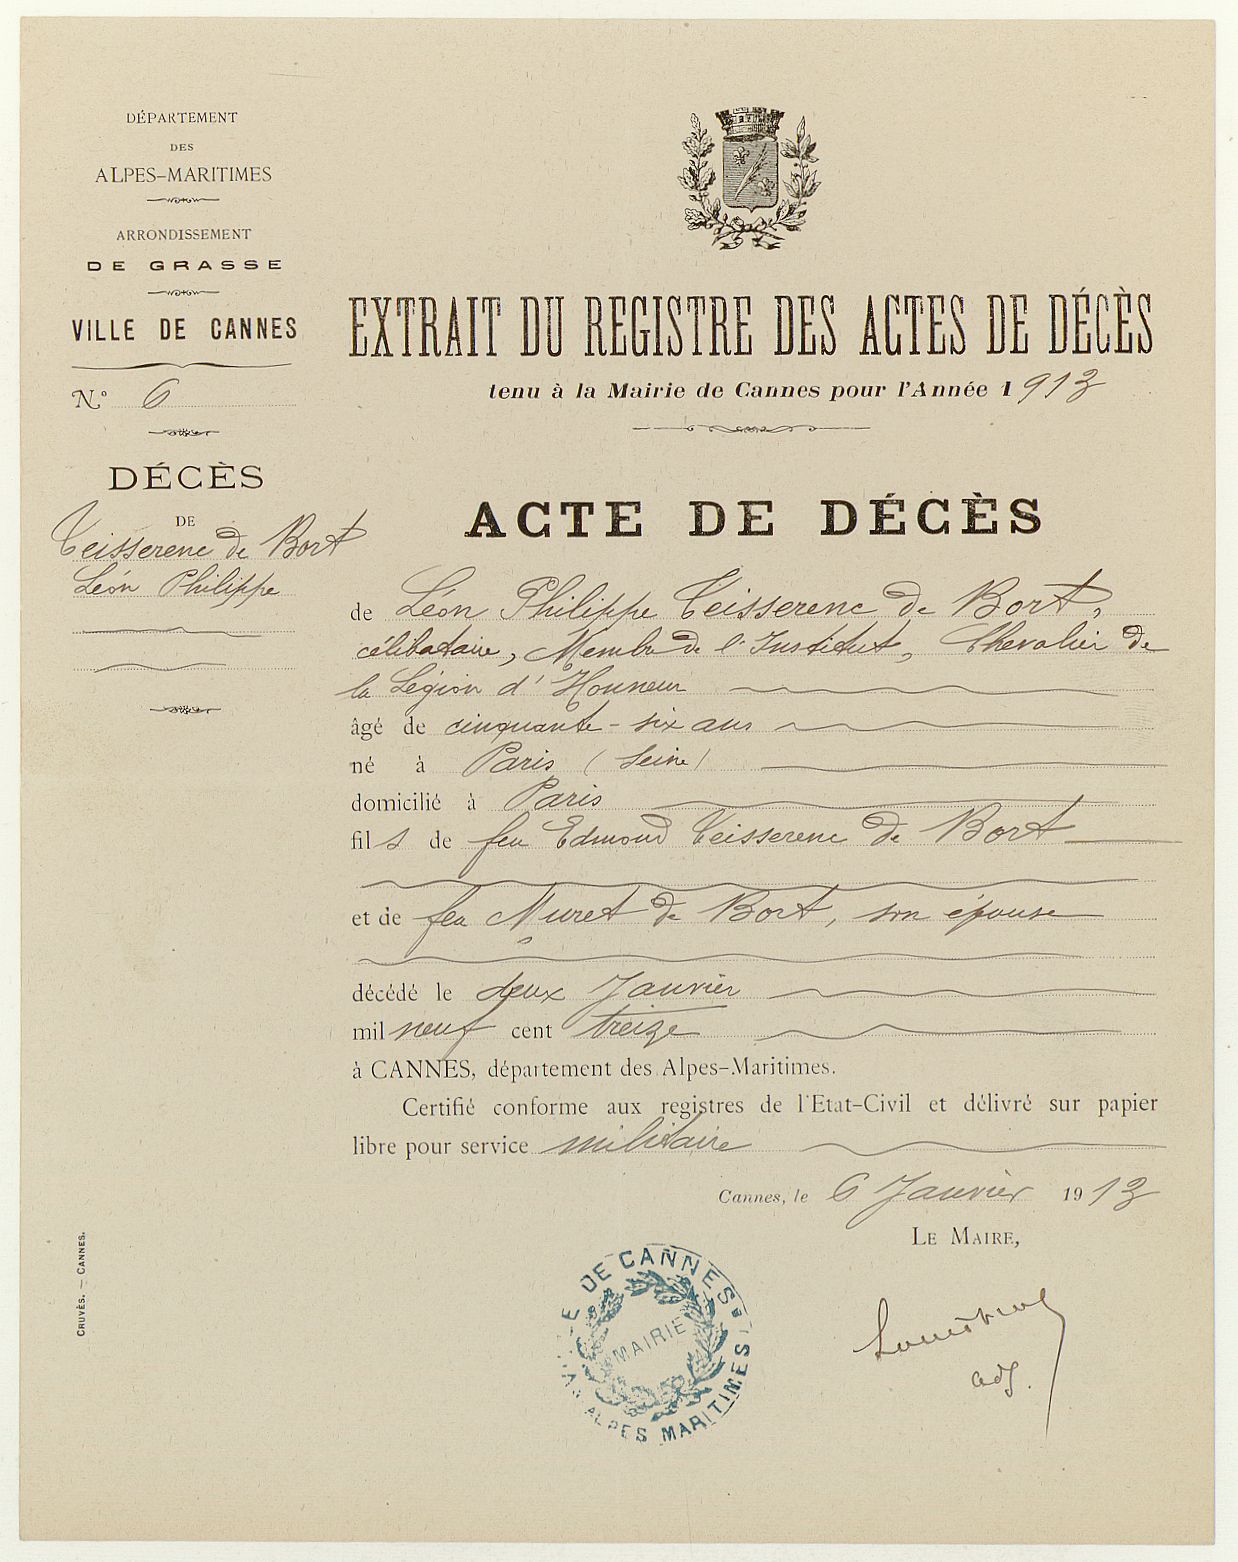 DÉPARTEMENT
DES
ALPES-MARITIMES
ARRONDISSEMENT
DE GRASSE
VILLE DE CANNES
N.° 6
DÉCÈS
DE
Teisserenc de Bort
Léon Philippe
EXTRAIT DU REGISTRE DES ACTES DE DÉCÈS
tenu à la Mairie de Cannes pour l'Année 1913
ACTE DE DÉCÈS
de Léon Philippe Teisserenc de Bort,
célibataire, Membre de l'Institut, Chevalier de
la Légion d'Honneur
âgé de cinquante-six ans
né à Paris (Seine)
domicilié à Paris
fils de feu Edmond Teisserenc de Bort
et de feu Muret de Bort, son épouse
décédé le deux Janvier
mil neuf cent treize
à CANNES, département des Alpes-Maritimes.
Certifié conforme aux registres de l'Etat-Civil et délivré sur papier
libre pour service militaire
Cannes, le 6 Janvier 1913
LE MAIRE,
adj.
DE CANNES
MAIRIE
ALPES MARITIMES
CRUVÈS. — CANNES.